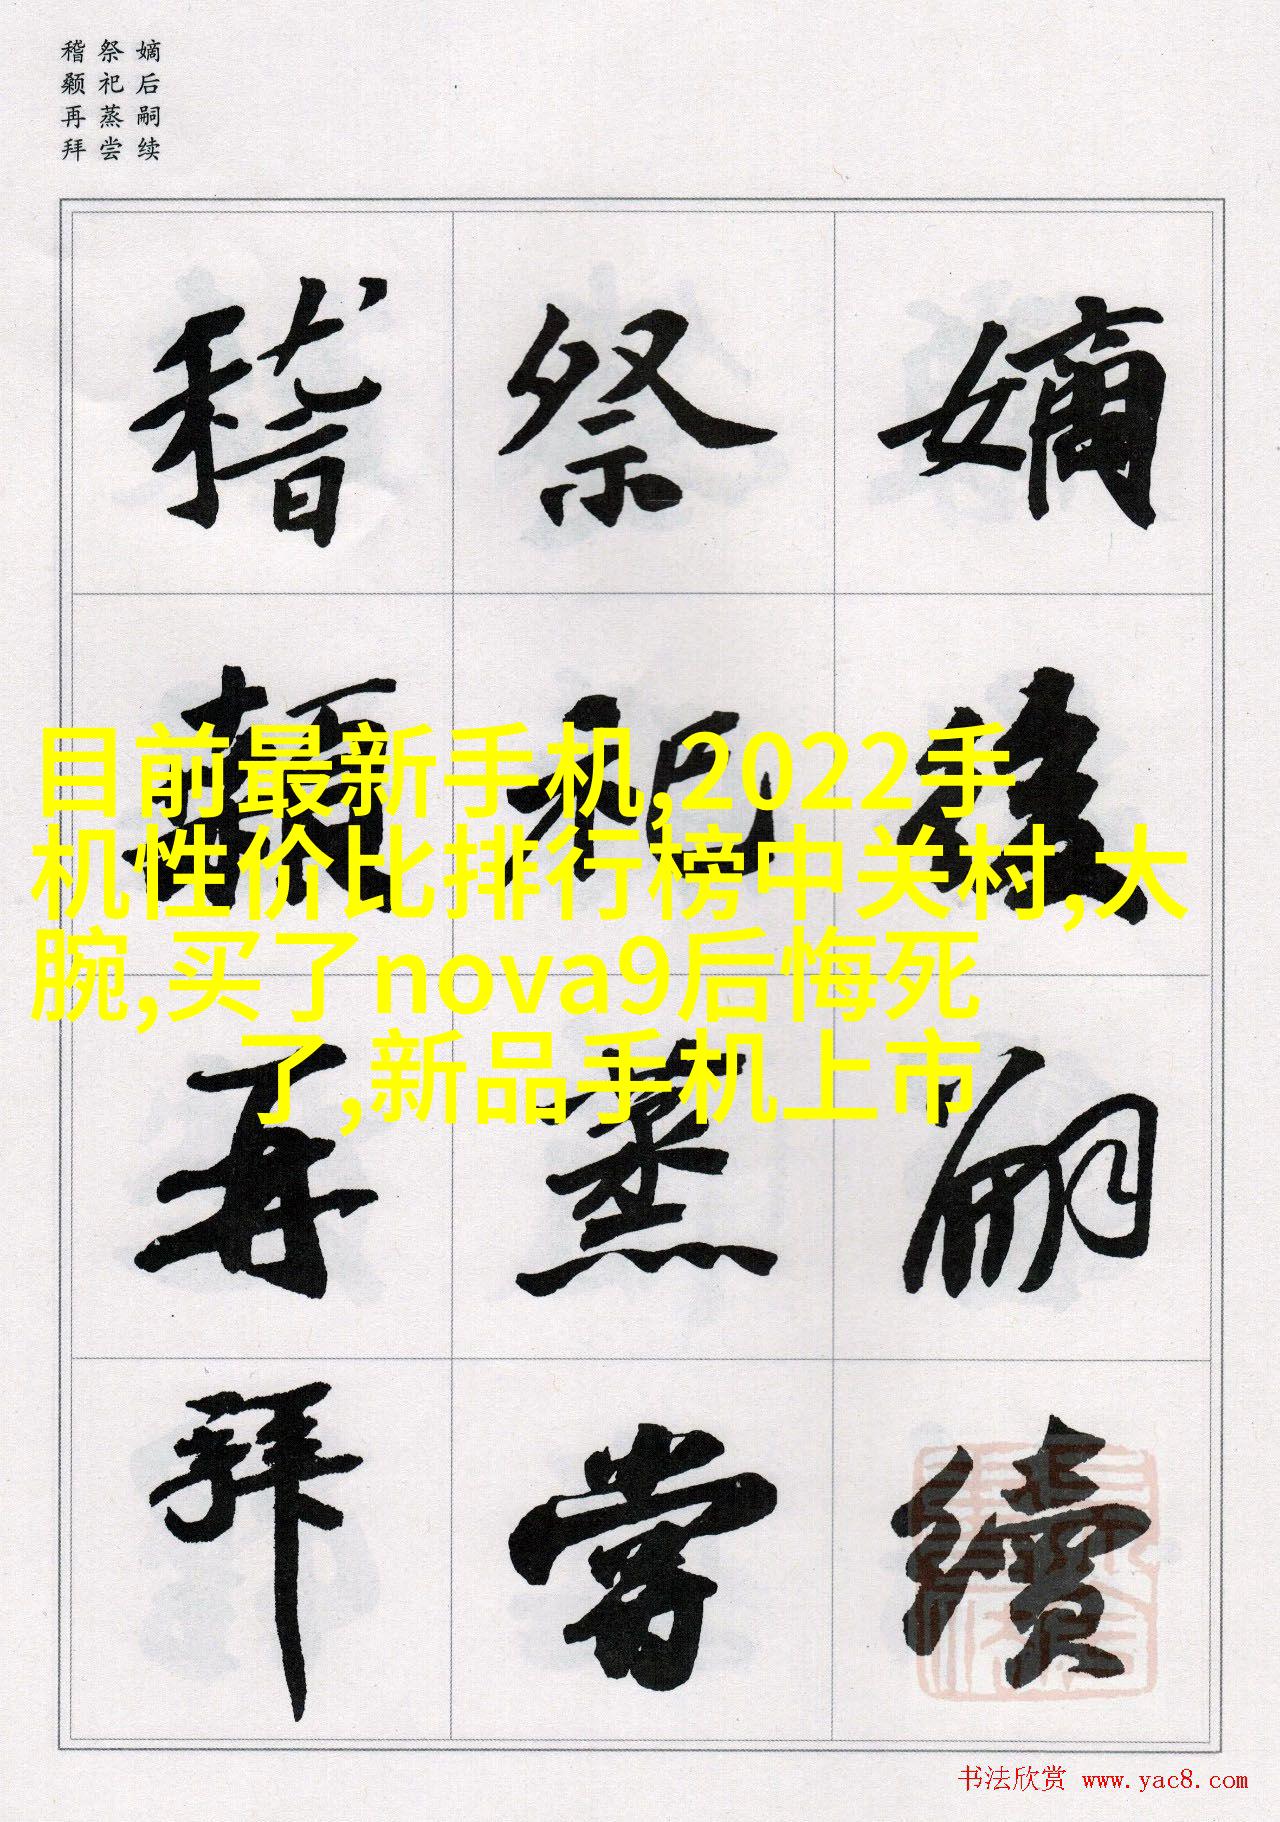 嫡后嗣续
祭祀蒸尝
稽颡再拜
嫡後嗣續
祭祀蒸嘗
稽顙再拜
目前最新手机,2022手
机性价比排行榜中关村,大
腕,买了nova9后悔死
了,新品手机上市
书法欣赏 www.yac8.com